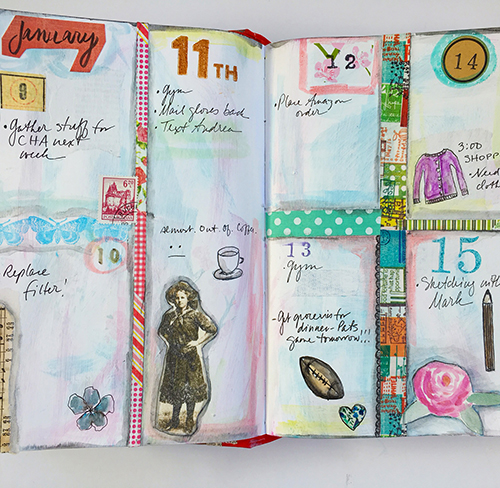 January
9
• Gather stuff for
CHA next
week
10
Replace
filter!
11TH
• Gym
• Mail gloves back
• Text Andrea
Almost. Out. Of. Coffee.
12
• Place Amazon
order
13
Gym
• Get groceries for
dinner - Pats
game tomorrow...
14
3:00
SHOPP
• Need
cloth
15
• Sketching with
Mark